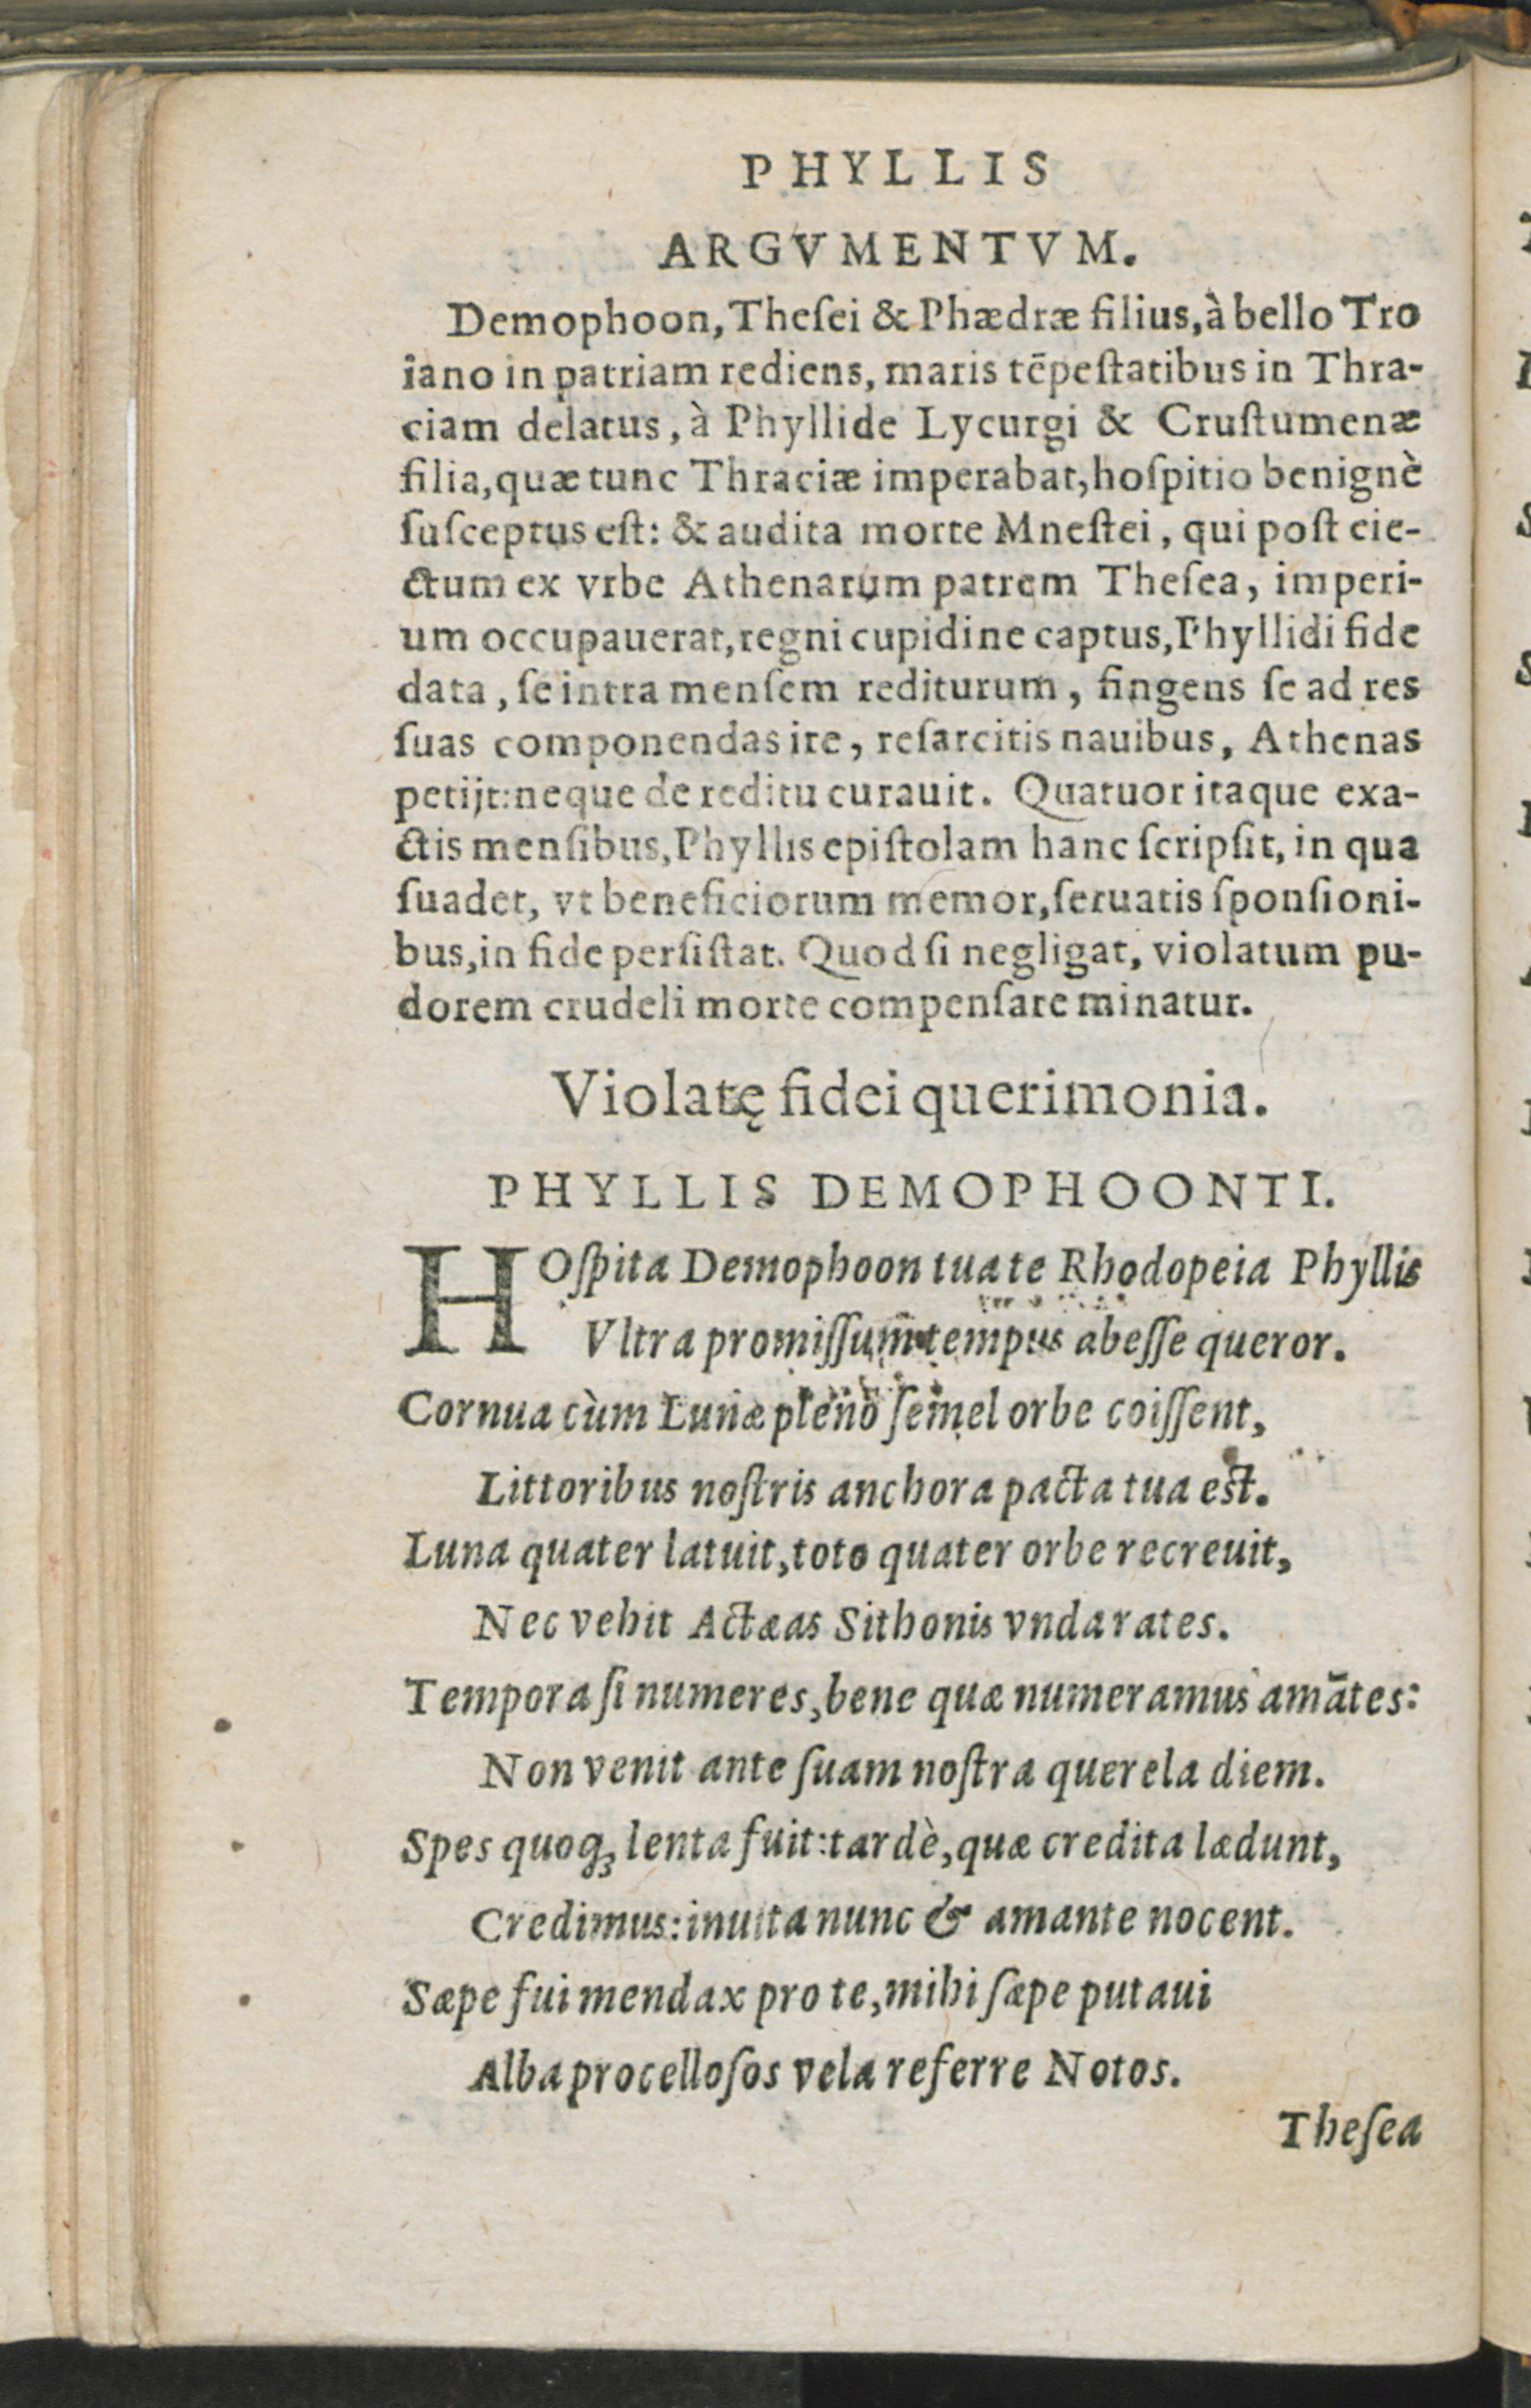 PHYLLIS
ARGVMENTVM.
Demophoon, Theſei & Phædræ filius, à bello Tro
iano in patriam rediens, maris tēpeſtatibus in Thra-
ciam delatus, à Phyllide Lycurgi & Cruſtumenæ
filia, quæ tunc Thraciæ imperabat, hoſpitio benignè
ſuſceptus eſt: & audita morte Mneſtei, qui poſt eie-
ctum ex vrbe Athenarum patrem Theſea, imperi-
um occupauerat, regni cupidine captus, Phyllidi fide
data, ſe intra menſem rediturum, fingens ſe ad res
ſuas componendas ire, reſarcitis nauibus, Athenas
petijt: neque de reditu curauit. Quatuor itaque exa-
ctis menſibus, Phyllis epiſtolam hanc ſcripſit, in qua
ſuadet, vt beneficiorum memor, ſeruatis ſponſioni-
bus, in fide perſiſtat. Quod ſi negligat, violatum pu-
dorem crudeli morte compenſare minatur.
Violatę fidei querimonia.
PHYLLIS DEMOPHOONTI.
HOſpita Demophoon tua te Rhodopeia Phyllis
Vltra promiſſum tempus abeſſe queror.
Cornua cùm Lunæ pleno ſemel orbe coiſſent,
Littoribus noſtris anchora pacta tua eſt.
Luna quater latuit, toto quater orbe recreuit,
Nec vehit Actæas Sithonis vnda rates.
Tempora ſi numeres, bene quæ numeramus amātes:
Non venit ante ſuam noſtra querela diem.
Spes quoq; lenta fuit: tardè, quæ credita lædunt,
Credimus: inuita nunc & amante nocent.
Sæpe fui mendax pro te, mihi ſæpe putaui
Alba procelloſos vela referre Notos.
Theſea